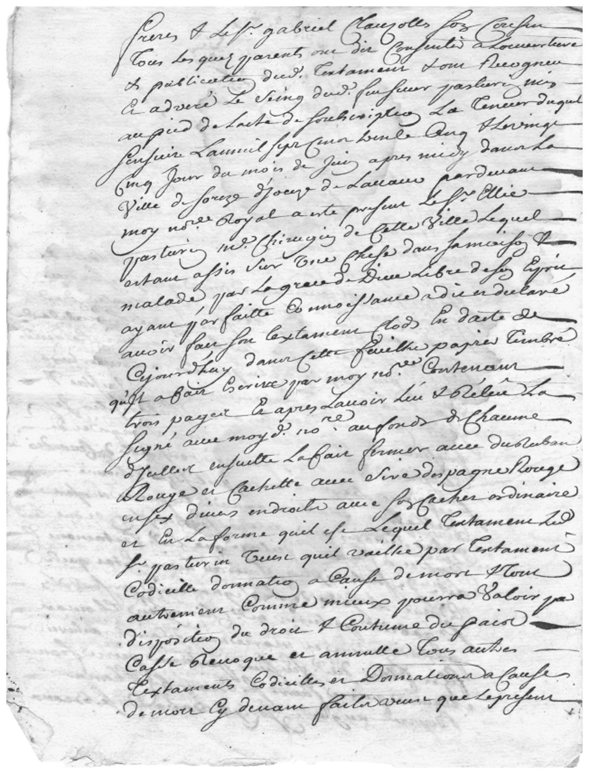 freres & le Sr. gabriel Clauzolles son Cousin
Tous lesquez parents ont dit Consentir a Louverture
& publication dud. Testament & ont Recogneu
Et adveré Le Seing dud. feu sieur pasturin mis
au pied de Lacte de Souscription La Teneur duquel
sensuit Lan mil sept Cens vente Cinq & Le vingt
Cinq Jour du mois de Juin apres midy dans La
Ville de Soreze dioceze de Lavaur pardevant
moy nore. Royal a esté present Le Sr. Ellie
pasturin me. Chirurgien de Cette Ville Lequel
estant assis sur Une Chese dans sa maison &
malade par La grace de Dieu Libre de son Esprit
ayant parfaitte Connoissance a dit et declaré
avoir fait son testament Clos En datte de
Ejourdhuy dans Cette feuille papier Timbré
quil a fait Escrire par moy nore. Contenant
trois pages Et apres Lavoir Leu & Releu La
signé avec moyd. nore. au fonds de Chacune
dicelles ensuitte La fait fermer avec du Ruban
Rouge et Cachetté avec Sire despagne Rouge
en six divers endroits avec son Cachet ordinaire
et En La forme quil est Lequel Testament Led.
Sr. pasturin Veut quil vaille par Testament
Codicille donnation a Cause de mort & tout
autrement Comme mieux pourra Valoir par
disposition du droit & Coutume du paiis
Casse Revoque et annulle Tous autres
Testaments Codicilles et Donnations a Cause
de mort Cy devant faits veut que Le present